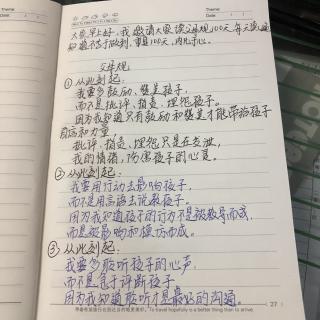 Theme:
Theme:
Date:
大家早上好，我邀请大家读父母规100天，每天读
知道不等于做到，重复100天，内化于心。
父母规
①从此刻起：
我要多鼓励、赞美孩子，
而不是批评、指责、埋怨孩子。
因为我知道只有鼓励和赞美才能带给孩子
自信和力量
批评、指责、埋怨只是在发泄
我的情绪，伤害孩子的心灵。
②从此刻起：
我要用行动去影响孩子，
而不是用言语去说教孩子。
因为我知道孩子的行为不是被教导而成，
而是被影响和模仿而成。
③从此刻起：
我要多聆听孩子的心声，
而不是急于评断孩子。
因为我知道聆听才是最好的沟通。
27
带着希望旅行比到达目的地更美好。To travel hopefully is a better thing than to arrive.